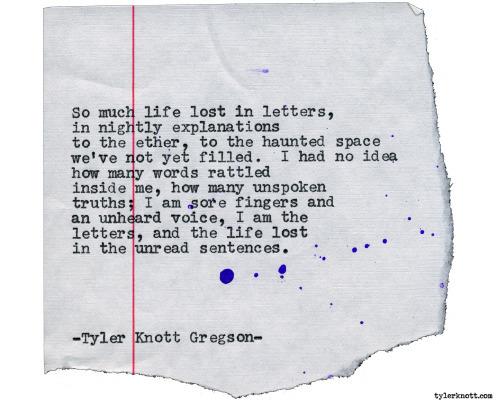 So much life lost in letters,
in nightly explanations
to the ether, to the haunted space
we've not yet filled.  I had no idea
how many words rattled
inside me, how many unspoken
truths; I am sore fingers and
an unheard voice, I am the
letters, and the life lost
in the unread sentences.
-Tyler Knott Gregson-
tylerknott.com